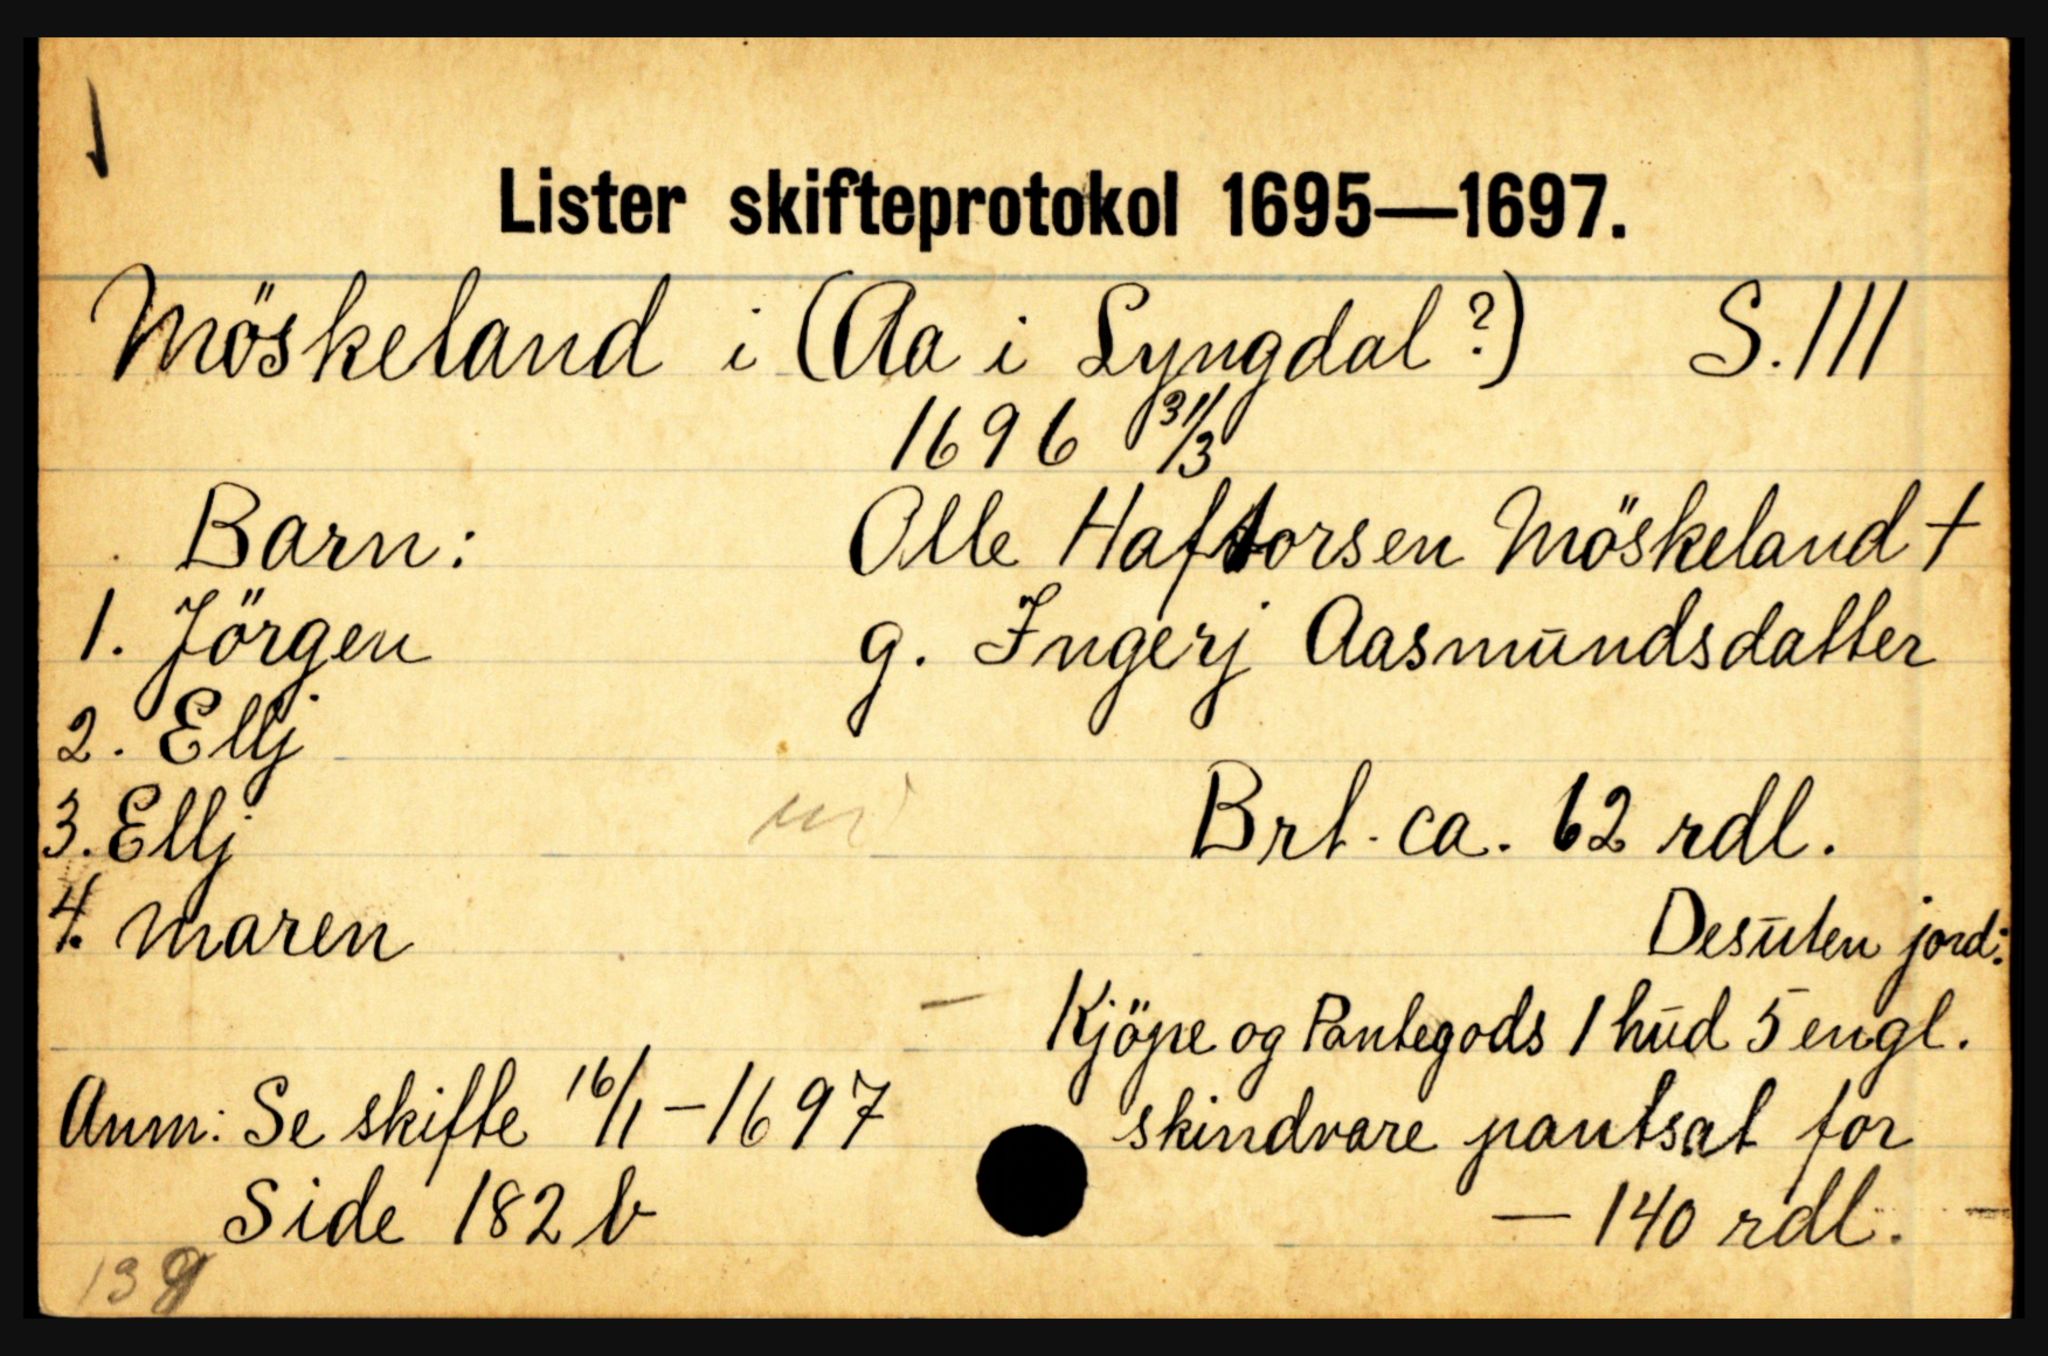 Lister skifteprotokol 1695—1697.
Möskeland i (Aa i Lyngdal?) S. 111
1696 31/3
Barn: Olle Haftorsen Möskeland †
1. Jörgen g. Ingerj Aasmūndsdatter
2. Ellj
3. Ellj Brt. ca. 62 rdl.
4. Maren Desūten jord:
Kjöpe og Pantegods 1 hūd 5 engl.
Anm: Se skifte 16/1-1697 skindvare pantsat for
Side 182 b — 140 rdl.
139